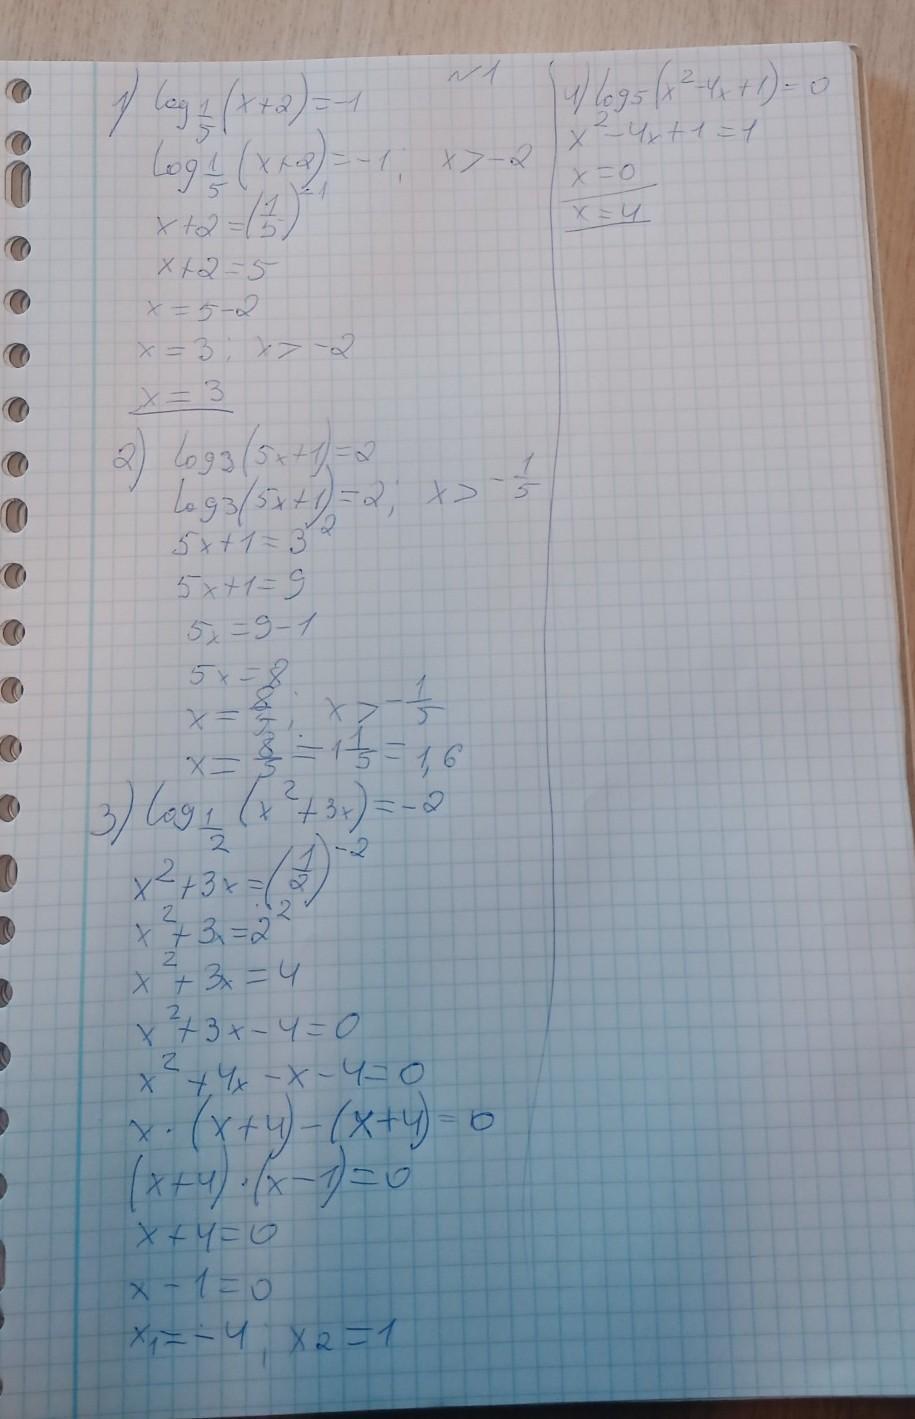 №1
1) log 1/5 (x+2) = -1
log 1/5 (x+2) = -1; x > -2
x+2 = (1/5)^-1
x+2 = 5
x = 5-2
x = 3; x > -2
x = 3
2) log3(5x+1) = 2
log3(5x+1) = 2; x > -1/5
5x+1 = 3^2
5x+1 = 9
5x = 9-1
5x = 8
x = 8/5; x > -1/5
x = 8/5 = 1 1/5 = 1,6
3) log 1/2 (x^2+3x) = -2
x^2+3x = (1/2)^-2
x^2+3x = 2^2
x^2+3x = 4
x^2+3x-4 = 0
x^2+4x-x-4 = 0
x·(x+4)-(x+4) = 0
(x+4)·(x-1) = 0
x+4 = 0
x-1 = 0
x1 = -4; x2 = 1
4) log5(x^2-4x+1) = 0
x^2-4x+1 = 1
x = 0
x = 4